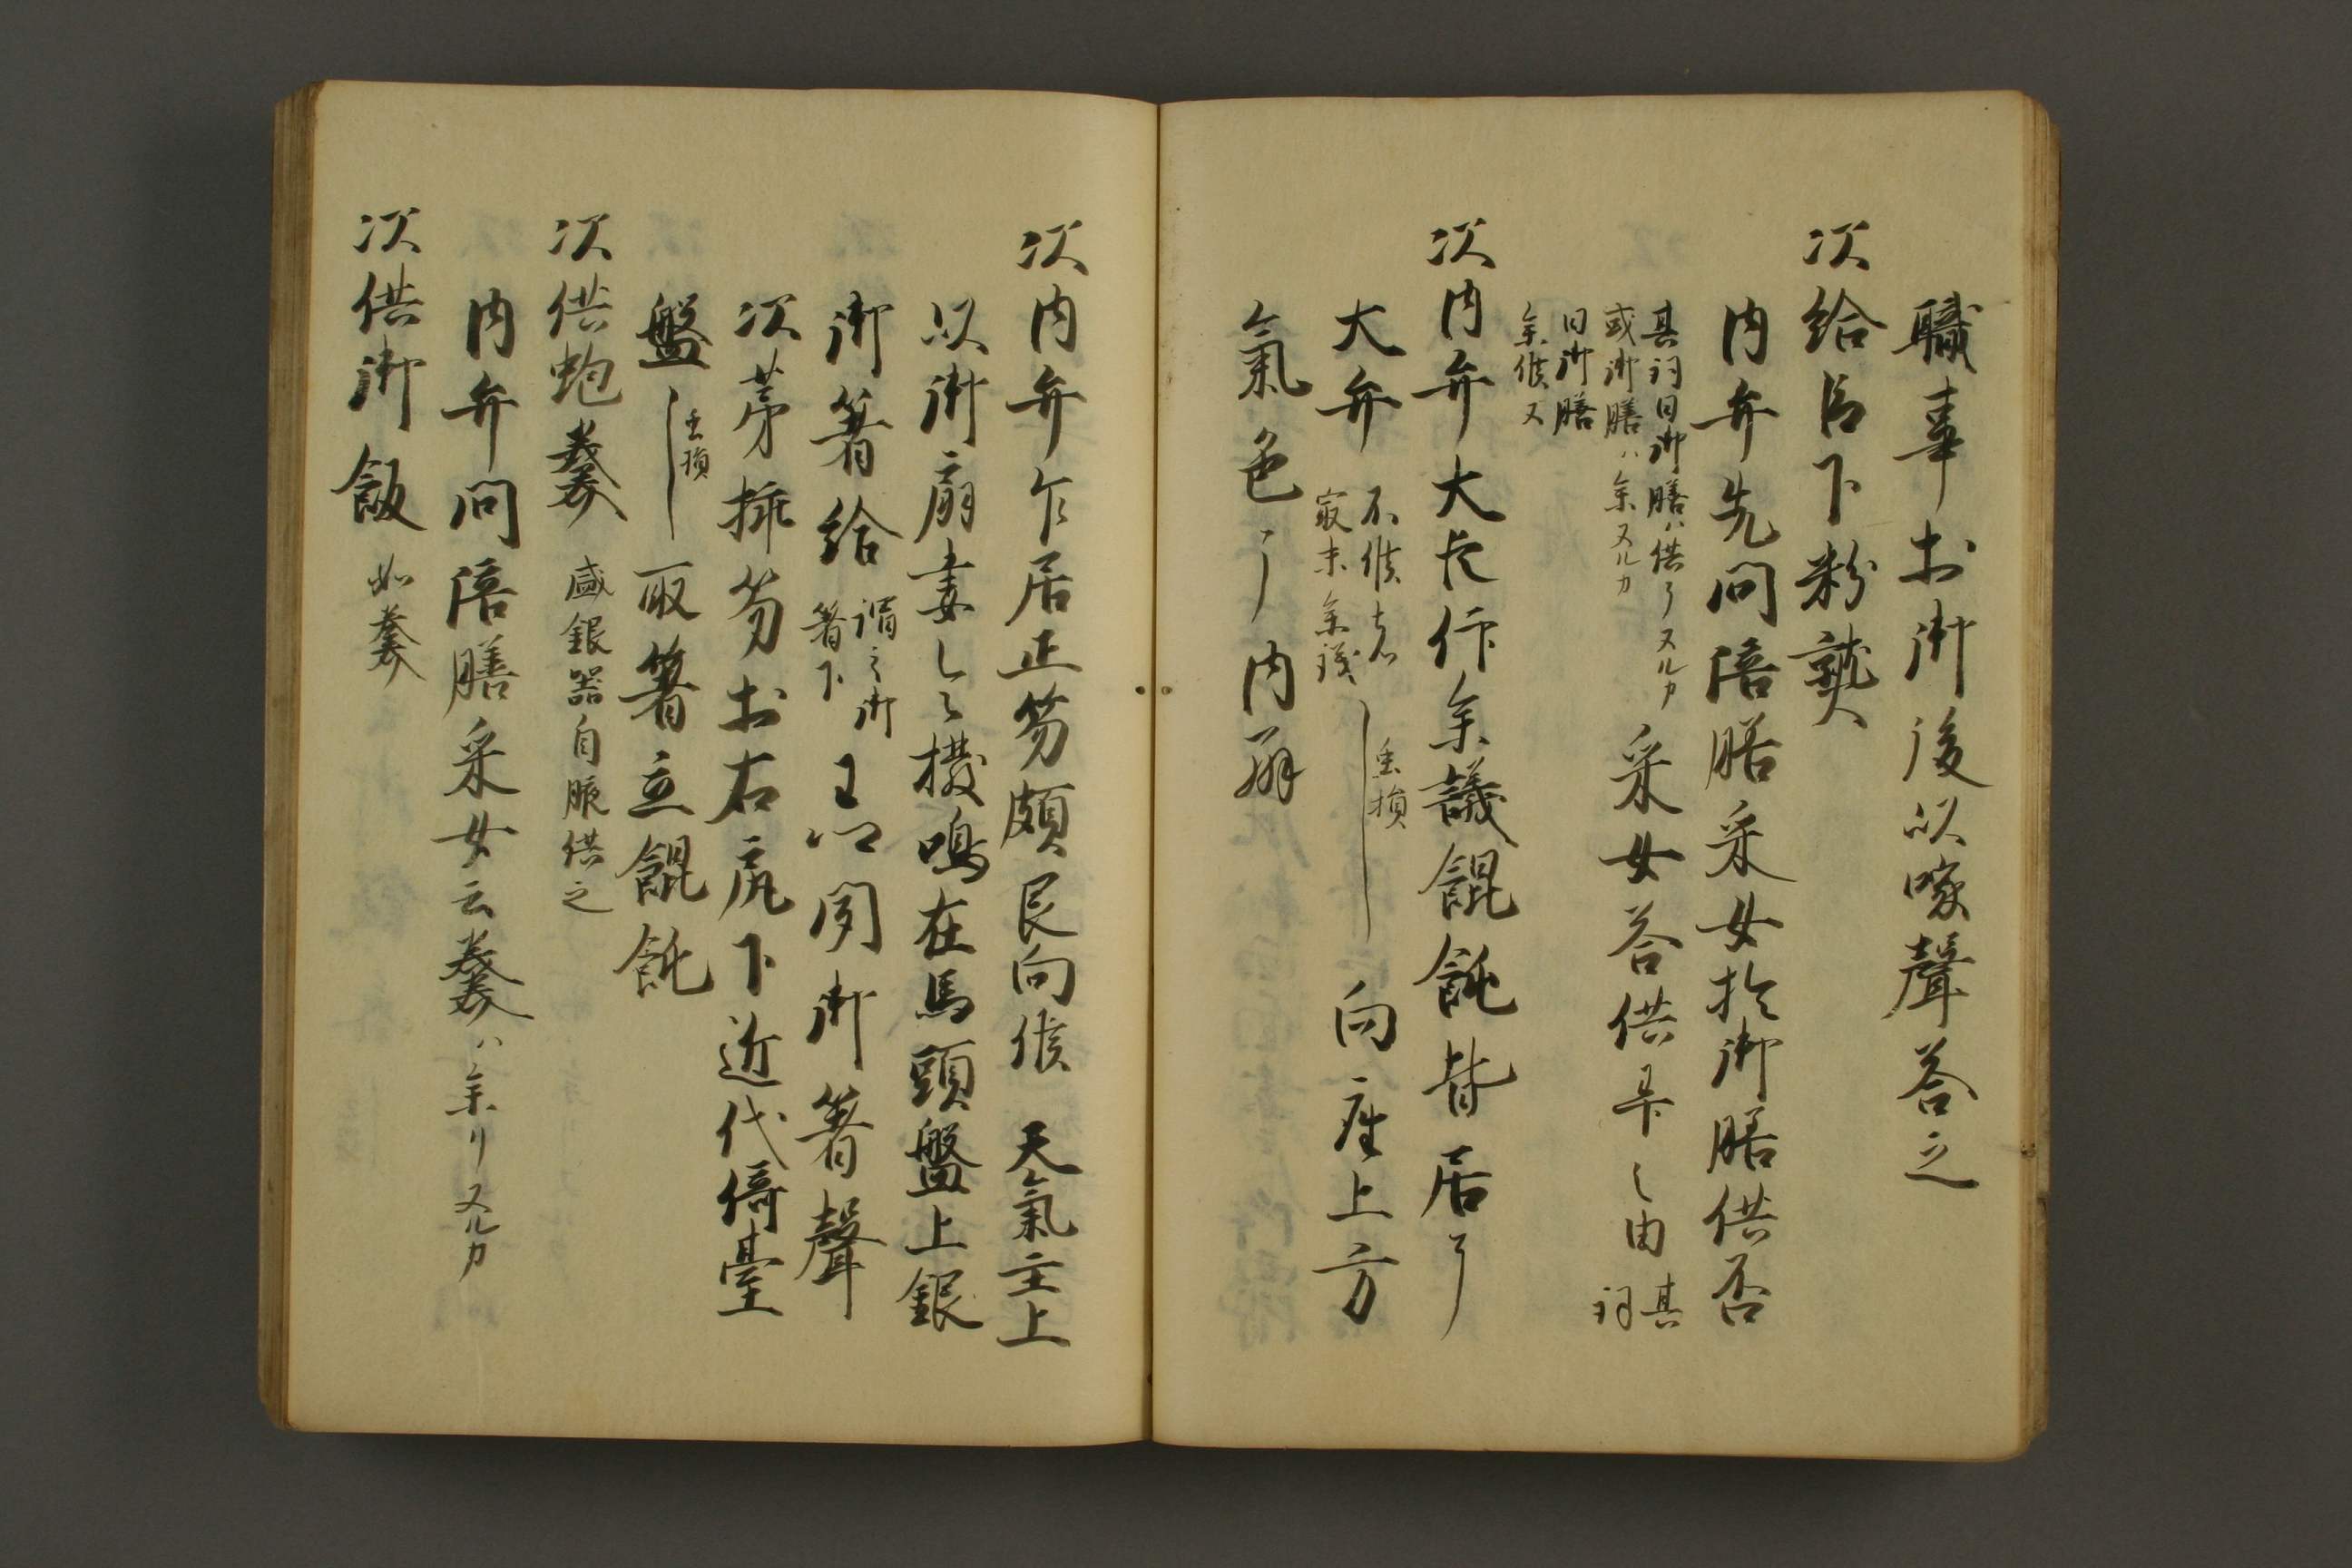 職事於御後以喚聲答之
次給臣下粉熟
内弁先問陪膳采女於御膳供否
其詞曰御膳ハ供了ヌルカ
或御膳ハ参ヌルカ
采女答供畢之由
其詞
曰御膳
参候ヌ
次内弁大臣仰参議餛飩皆居了
大弁
不候者
最末参議
虫損
向座上方
氣色了内弁
次内弁乍居正笏頗艮向候 天氣主上
以御扇妻令撥鳴在馬頭盤上銀
御箸給
謂之御
箸下
王卿聞御箸聲
次第挿笏於右尻下近代倚臺
盤
虫損
取箸立餛飩
次供鮑羹
盛銀器自脇供之
内弁問陪膳采女云羹ハ参リヌルカ
次供御飯
如羹